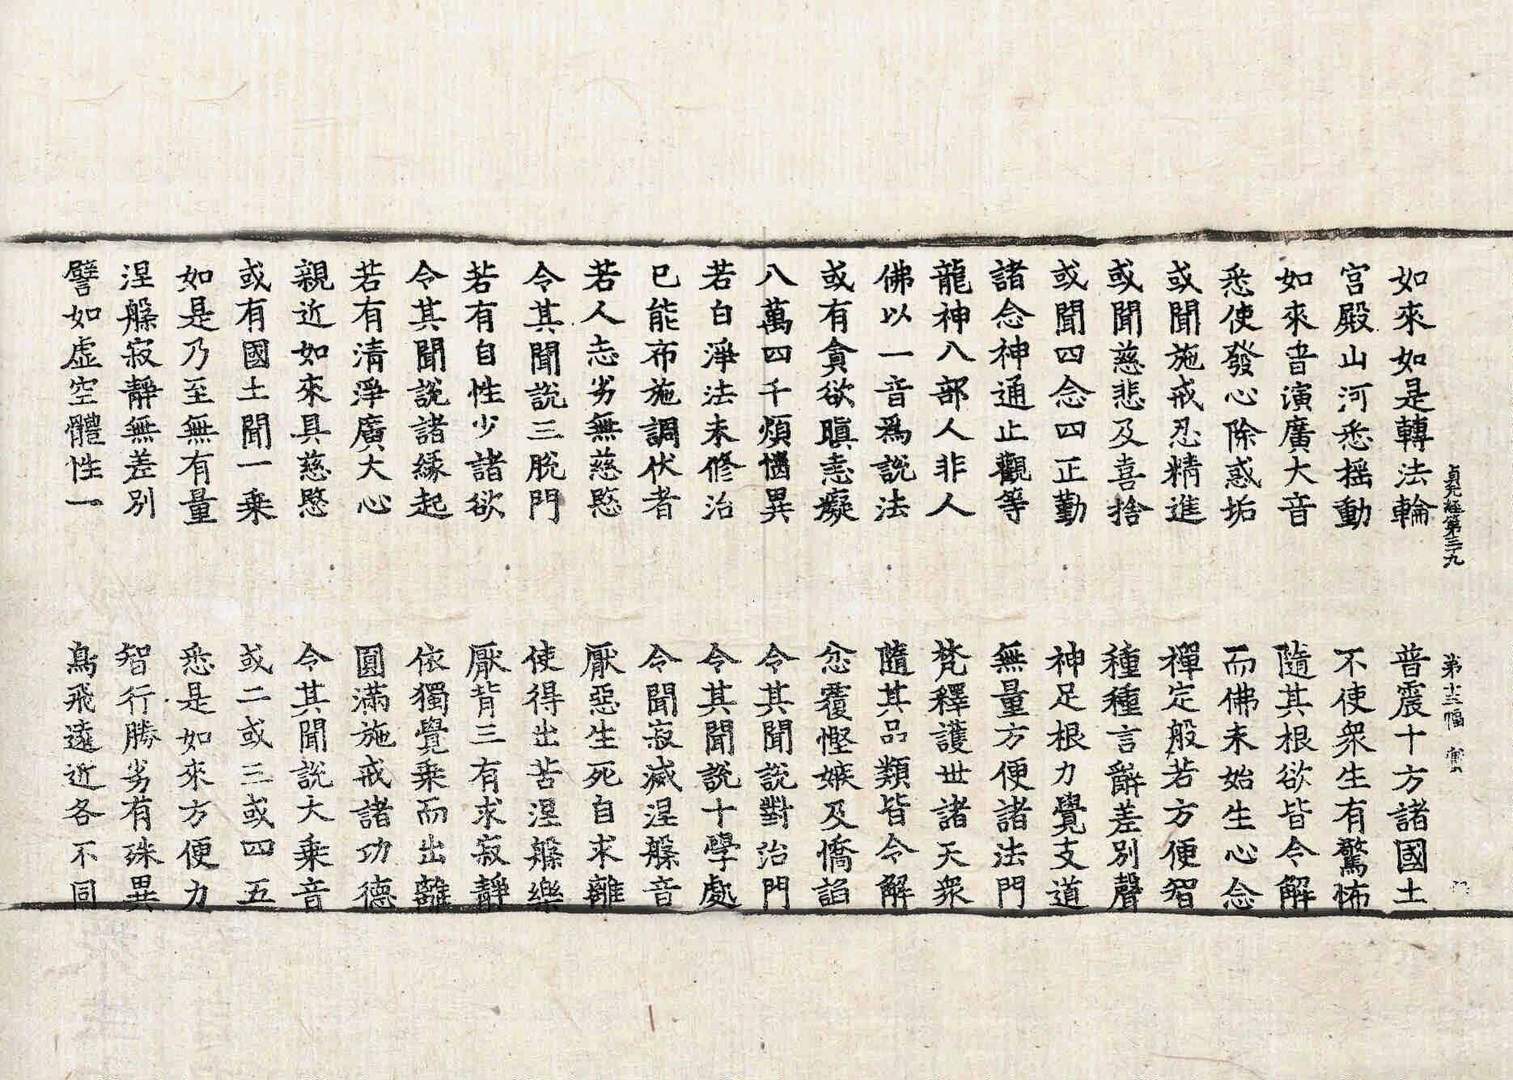 貞元經第三九 第十三幅
如來如是轉法輪 普震十方諸國土
宮殿山河悉揺動 不使衆生有驚怖
如來音演廣大音 隨其根欲皆令解
悉使發心除惑垢 而佛未始生心念
或聞施戒忍精進 禪定般若方便智
或聞慈悲及喜捨 種種言辭差別聲
或聞四念四正勤 神足根力覺支道
諸念神通止觀等 無量方便諸法門
龍神八部人非人 梵釋護世諸天衆
佛以一音爲說法 隨其品類皆令解
或有貪欲瞋恚癡 忿覆慳嫉及憍諂
八萬四千煩惱異 令其聞說對治門
若白淨法未修治 令其聞說十學處
已能布施調伏者 令聞寂滅涅槃音
若人志劣無慈愍 厭惡生死自求離
令其聞說三脫門 使得出苦涅槃樂
若有自性少諸欲 厭背三有求寂靜
令其聞說諸緣起 依獨覺乘而出離
若有清淨廣大心 圓滿施戒諸功德
親近如來具慈愍 令其聞說大乘音
或有國土聞一乘 或二或三或四五
如是乃至無有量 悉是如來方便力
涅槃寂靜無差別 智行勝劣有殊異
譬如虛空體性一 鳥飛遠近各不同